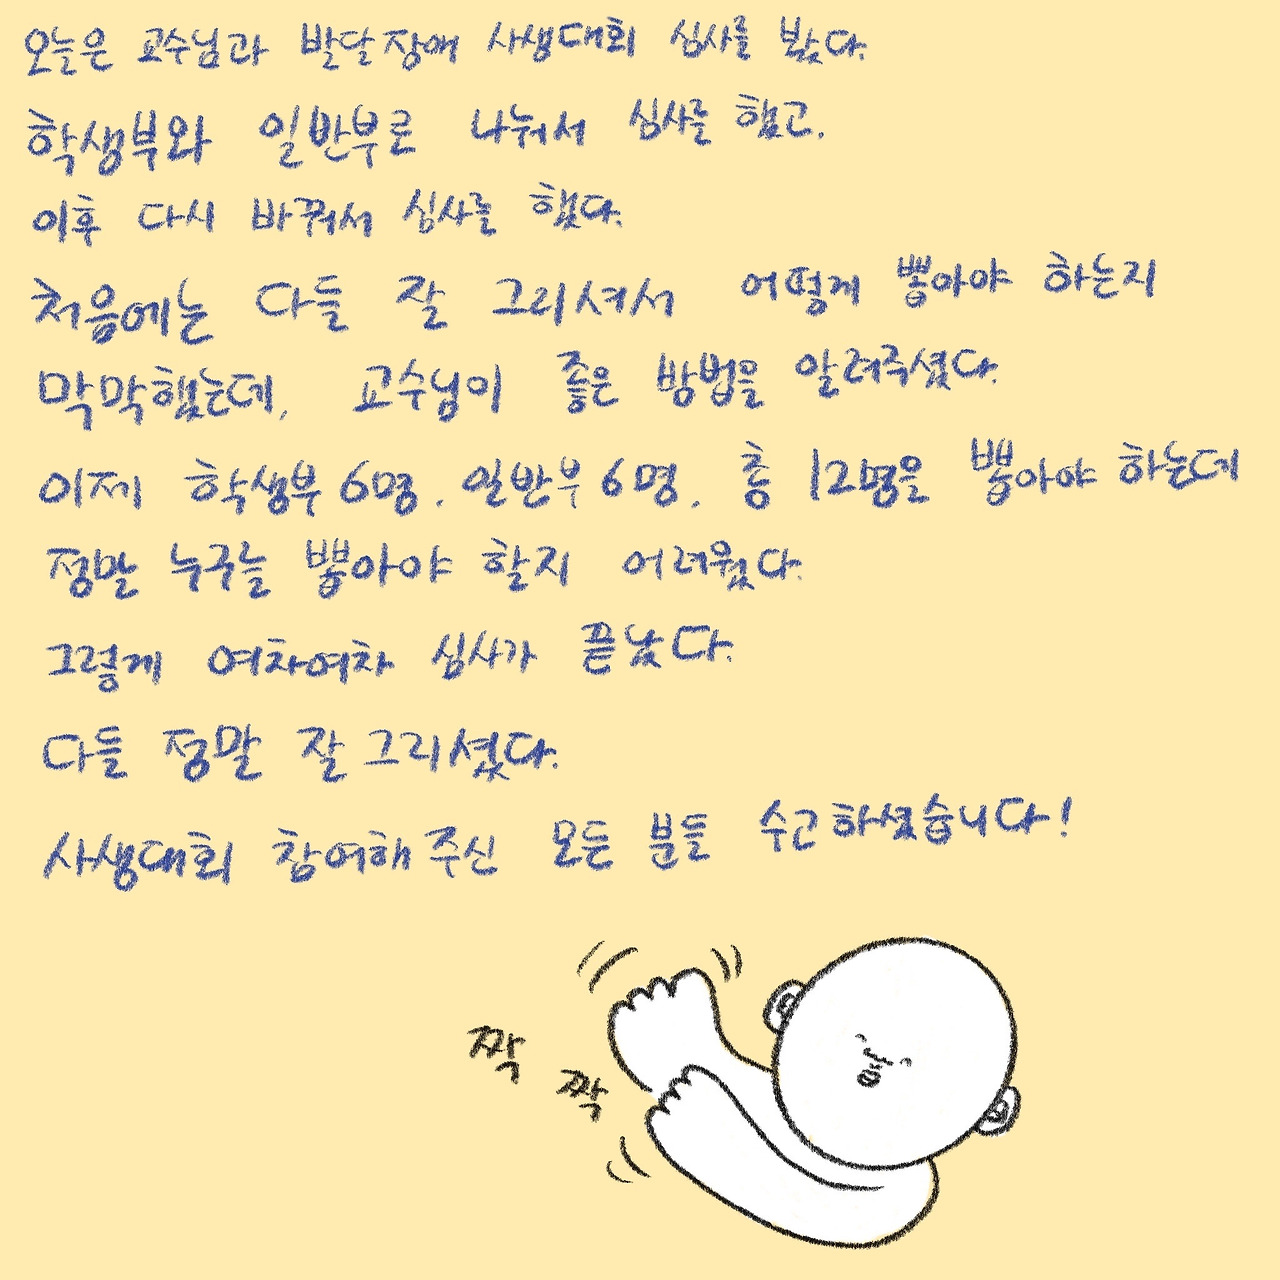 오늘은 교수님과 발달장애 사생대회 심사를 봤다.
학생부와 일반부로 나눠서 심사를 했고,
이후 다시 바꿔서 심사를 했다.
처음에는 다들 잘 그리셔서 어떻게 뽑아야 하는지
막막했는데, 교수님이 좋은 방법을 알려주셨다.
이제 학생부 6명, 일반부 6명, 총 12명을 뽑아야 하는데
정말 누구늘 뽑아야 할지 어려웠다.
그렇게 여차여차 심사가 끝났다.
다들 정말 잘 그리셨다.
사생대회 참여해 주신 모든 분들 수고하셨습니다!
짝
짝